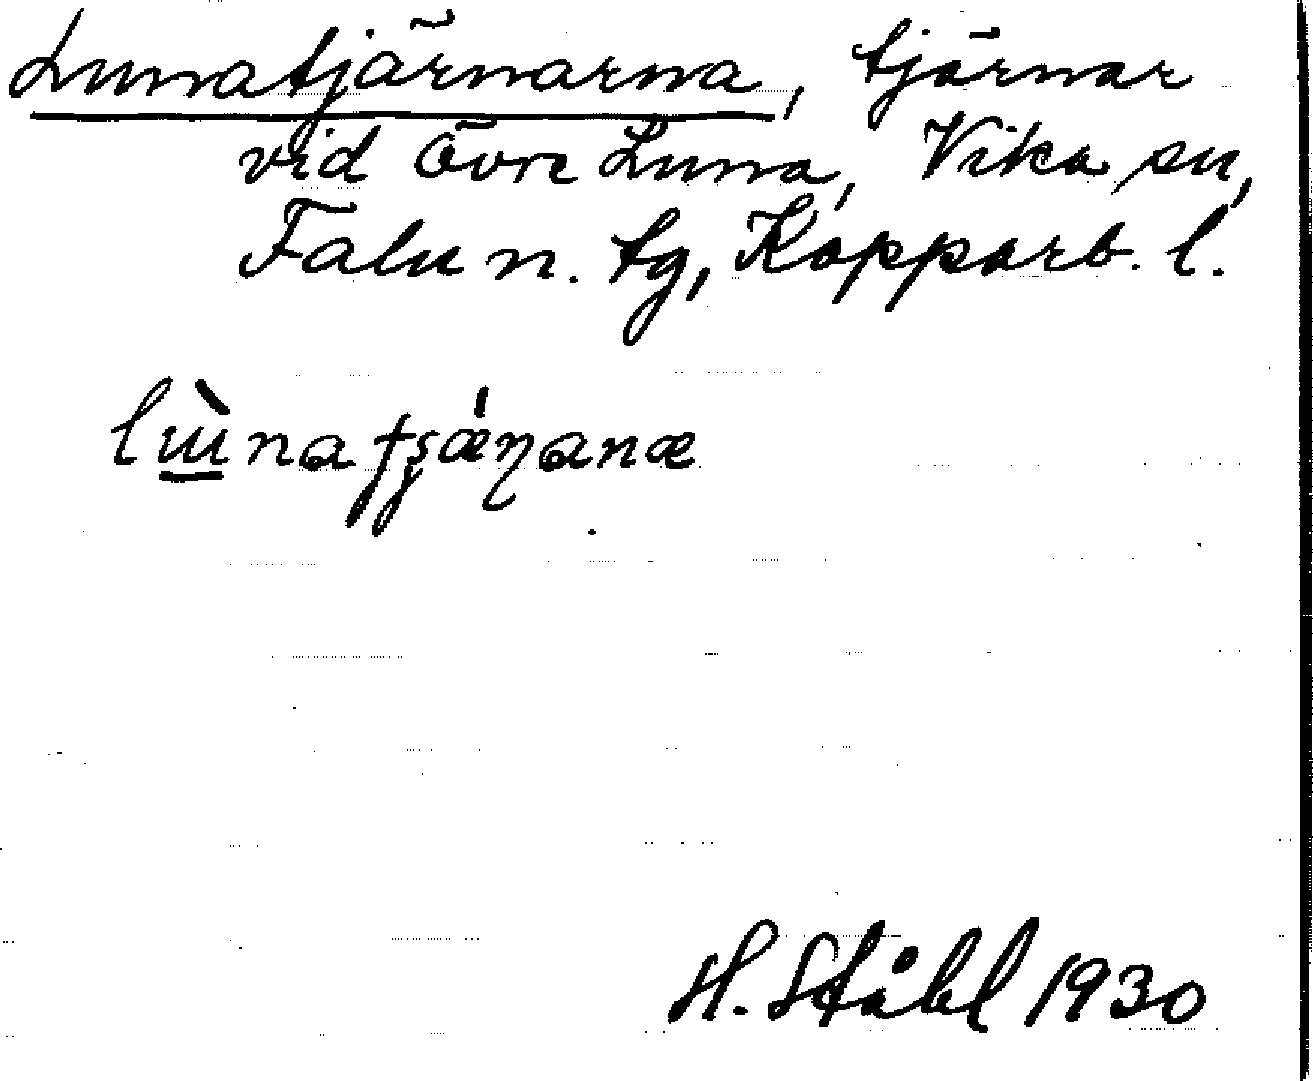 Lunatjärnarna, tjärnar
vid Övre Luna, Vika sn,
Falu n. tg, Kopparb. l.
H. Ståhl 1930